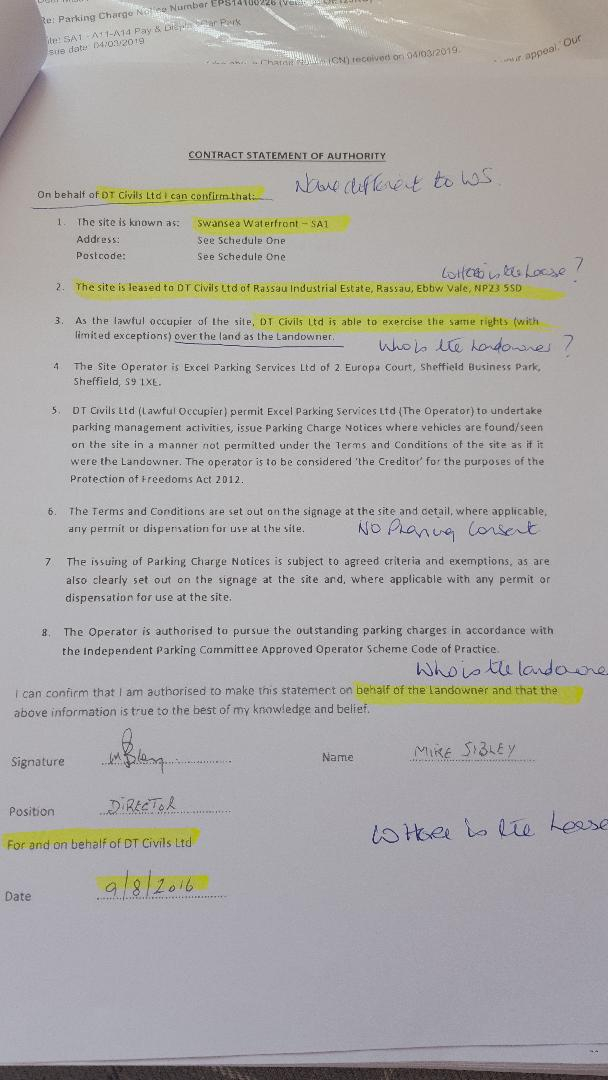 Re: Parking Charge Notice Number EPS14100226
SA1 - A11-A14 Pay & Display Car Park
sue date: 04/03/2019
(CN) received on 04/03/2019.
your appeal. Our
CONTRACT STATEMENT OF AUTHORITY
Name different to WS.
On behalf of DT Civils Ltd I can confirm that:
1. The site is known as: Swansea Waterfront – SA1
Address: See Schedule One
Postcode: See Schedule One
Where is the Lease?
2. The site is leased to DT Civils Ltd of Rassau Industrial Estate, Rassau, Ebbw Vale, NP23 5SD
3. As the lawful occupier of the site, DT Civils Ltd is able to exercise the same rights (with
limited exceptions) over the land as the Landowner.
Who is the Landowner?
4 The Site Operator is Excel Parking Services Ltd of 2 Europa Court, Sheffield Business Park,
Sheffield, S9 1XE.
5. DT Civils Ltd (Lawful Occupier) permit Excel Parking Services Ltd (The Operator) to undertake
parking management activities, issue Parking Charge Notices where vehicles are found/seen
on the site in a manner not permitted under the Terms and Conditions of the site as if it
were the Landowner. The operator is to be considered 'the Creditor' for the purposes of the
Protection of Freedoms Act 2012.
6. The Terms and Conditions are set out on the signage at the site and detail, where applicable,
any permit or dispensation for use at the site.
No Planning Consent
7 The issuing of Parking Charge Notices is subject to agreed criteria and exemptions, as are
also clearly set out on the signage at the site and, where applicable with any permit or
dispensation for use at the site.
8. The Operator is authorised to pursue the outstanding parking charges in accordance with
the Independent Parking Committee Approved Operator Scheme Code of Practice.
Who is the landowne
I can confirm that I am authorised to make this statement on behalf of the Landowner and that the
above information is true to the best of my knowledge and belief.
Signature
Name MIKE SIBLEY
Position DIRECTOR
For and on behalf of DT Civils Ltd
Where is the Lease
Date 9/8/2016